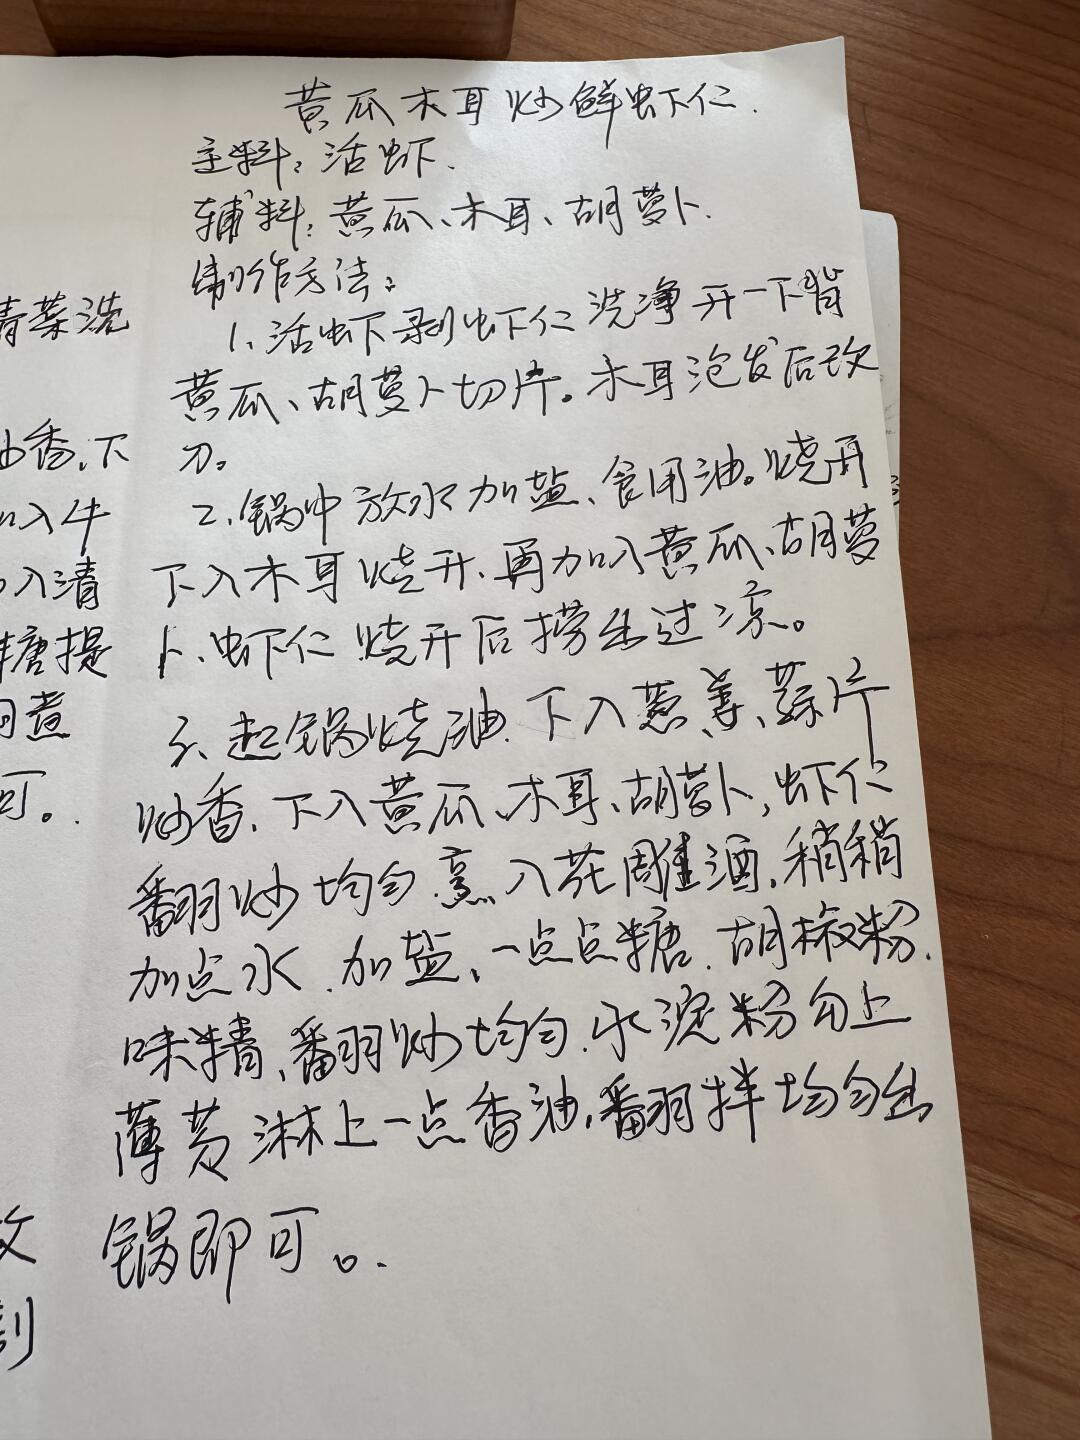 黄瓜木耳炒鲜虾仁.
主料：活虾.
辅料：黄瓜、木耳、胡萝卜.
制作方法：
1、活虾剥虾仁洗净开一下背
黄瓜、胡萝卜切片。木耳泡发后改
刀。
2、锅中放水加盐、食用油。烧开
下入木耳烧开、再加入黄瓜、胡萝
卜、虾仁烧开后捞出过凉。
3、起锅烧油.下入葱姜、蒜片
炒香、下入黄瓜、木耳、胡萝卜,虾仁
翻炒均匀.烹入花雕酒,稍稍
加点水.加盐、一点点糖.胡椒粉.
味精、翻炒均匀.水淀粉勾上
薄芡淋上一点香油,翻拌均匀出
锅即可。
青菜洗
香、下
加入牛
入清
糖提
煮
可。